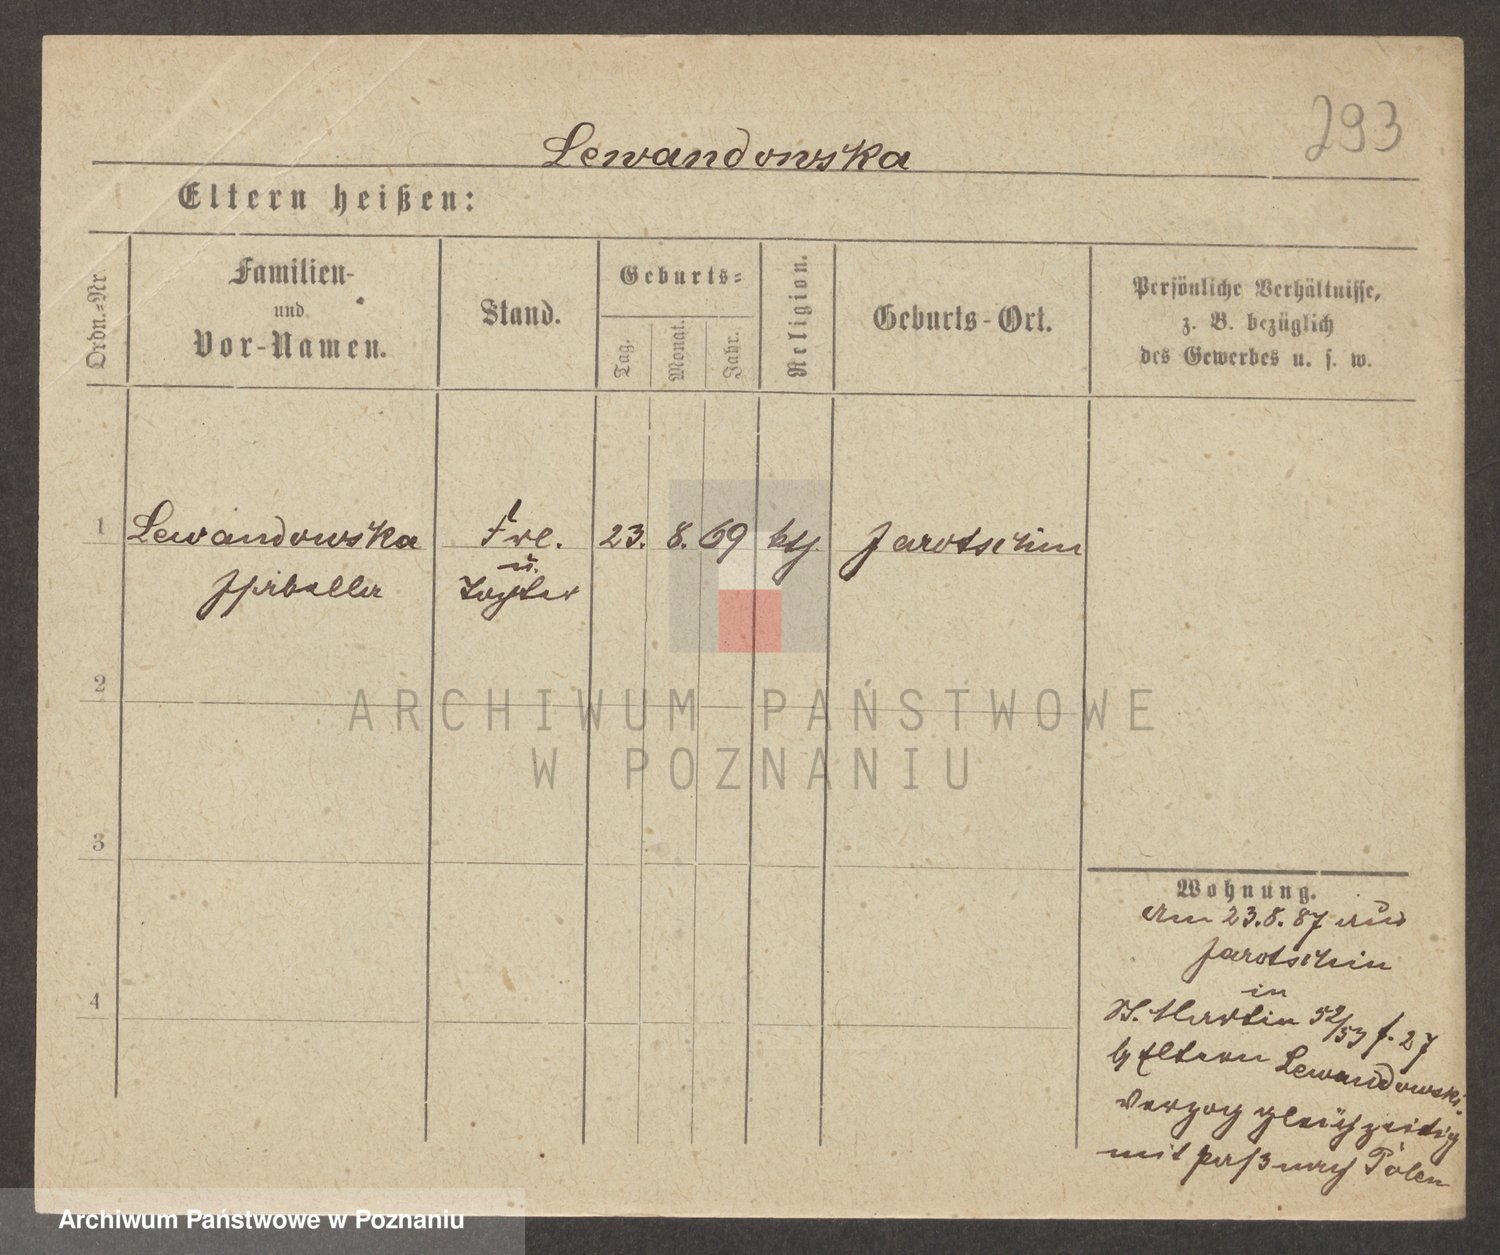 293
Lewandowska
Eltern heißen:
Ordn.-Nr
Familien-
und
Vor-Namen.
Stand.
Geburts-
Tag.
Monat.
Jahr.
Religion.
Geburts-Ort.
Persönliche Verhältnisse,
z. B. bezüglich
des Gewerbes u. s. w.
1 Lewandowska Frl. 23. 8. 69 kth Jarotschin
u.
Tochter
2
ARCHIWUM PAŃSTWOWE
W POZNANIU
3
Wohnung.
Am 23.8.87 aus
Jarotschin
4
in
St. Martin 52/53 f. 27
b/ Eltern Lewandowski.
Verzog gleichzeitig
mit Paß nach Polen
Archiwum Państwowe w Poznaniu